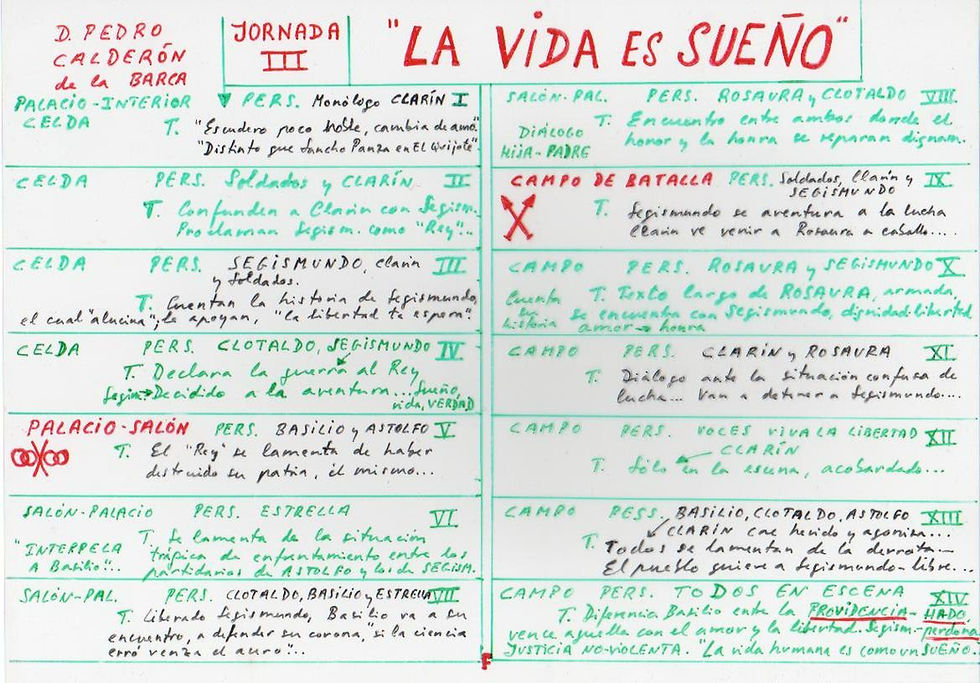 D. PEDRO
CALDERÓN
de la BARCA
JORNADA
III
"LA VIDA ES SUEÑO"
PALACIO-INTERIOR PERS. Monólogo CLARÍN I
CELDA
T. "Escudero poco noble, cambia de amo."
"Distinto que Sancho Panza en El Quijote"
CELDA PERS. Soldados y CLARÍN II
T. Confunden a Clarín con Segism.
Proclaman Segism. como "Rey"...
CELDA PERS. SEGISMUNDO, Clarín III
y Soldados.
T. Cuentan la historia de Segismundo,
el cual "alucina", le apoyan, "la libertad te espera".
CELDA PERS. CLOTALDO, SEGISMUNDO IV
T. Declara la guerra al Rey
Segism. Decidido a la aventura... Sueño,
vida, VERDAD
PALACIO-SALÓN PERS. BASILIO y ASTOLFO V
T. El "Rey" se lamenta de haber
destruido su patria, él mismo...
SALÓN-PALACIO PERS. ESTRELLA VI
"INTERPELA
A Basilio"...
T. Se lamenta de la situación
trágica de enfrentamiento entre los
partidarios de ASTOLFO y los de SEGISM.
SALÓN-PAL. PERS. CLOTALDO, BASILIO y ESTRELLA VII
T. Liberado Segismundo, Basilio va a su
encuentro, a defender su corona, "si la ciencia
erró venza el
SALÓN-PAL. PERS. ROSAURA y CLOTALDO VIII
DIÁLOGO
HIJA-PADRE
T. Encuentro entre ambos donde el
honor y la honra se reparan dignam.
CAMPO DE BATALLA PERS. Soldados, Clarín y IX
SEGISMUNDO
T. Segismundo se aventura a la lucha
Clarín ve venir a Rosaura a caballo....
CAMPO PERS. ROSAURA y SEGISMUNDO X
Cuenta
su
historia
T. Texto largo de ROSAURA, armada,
se encuentra con Segismundo, dignidad-libertad
amor → honra
CAMPO PERS. CLARÍN y ROSAURA XI
T. Diálogo ante la situación confusa de
lucha... Van a detener a Segismundo...
CAMPO PERS. VOCES VIVA LA LIBERTAD XII
CLARÍN
T. Sólo en la escena, acobardado...
CAMPO PESS. BASILIO, CLOTALDO, ASTOLFO XIII
CLARÍN cae herido y agoniza...
T. Todos se lamentan de la derrota...
El pueblo quiere a Segismundo-libre...
CAMPO PERS. TODOS EN ESCENA XIV
T. Diferencia Basilio entre la PROVIDENCIA-HADO
vence aquella con el amor y la libertad. Segism-perdona
JUSTICIA NO-VIOLENTA. "La vida humana es como un SUEÑO...
F